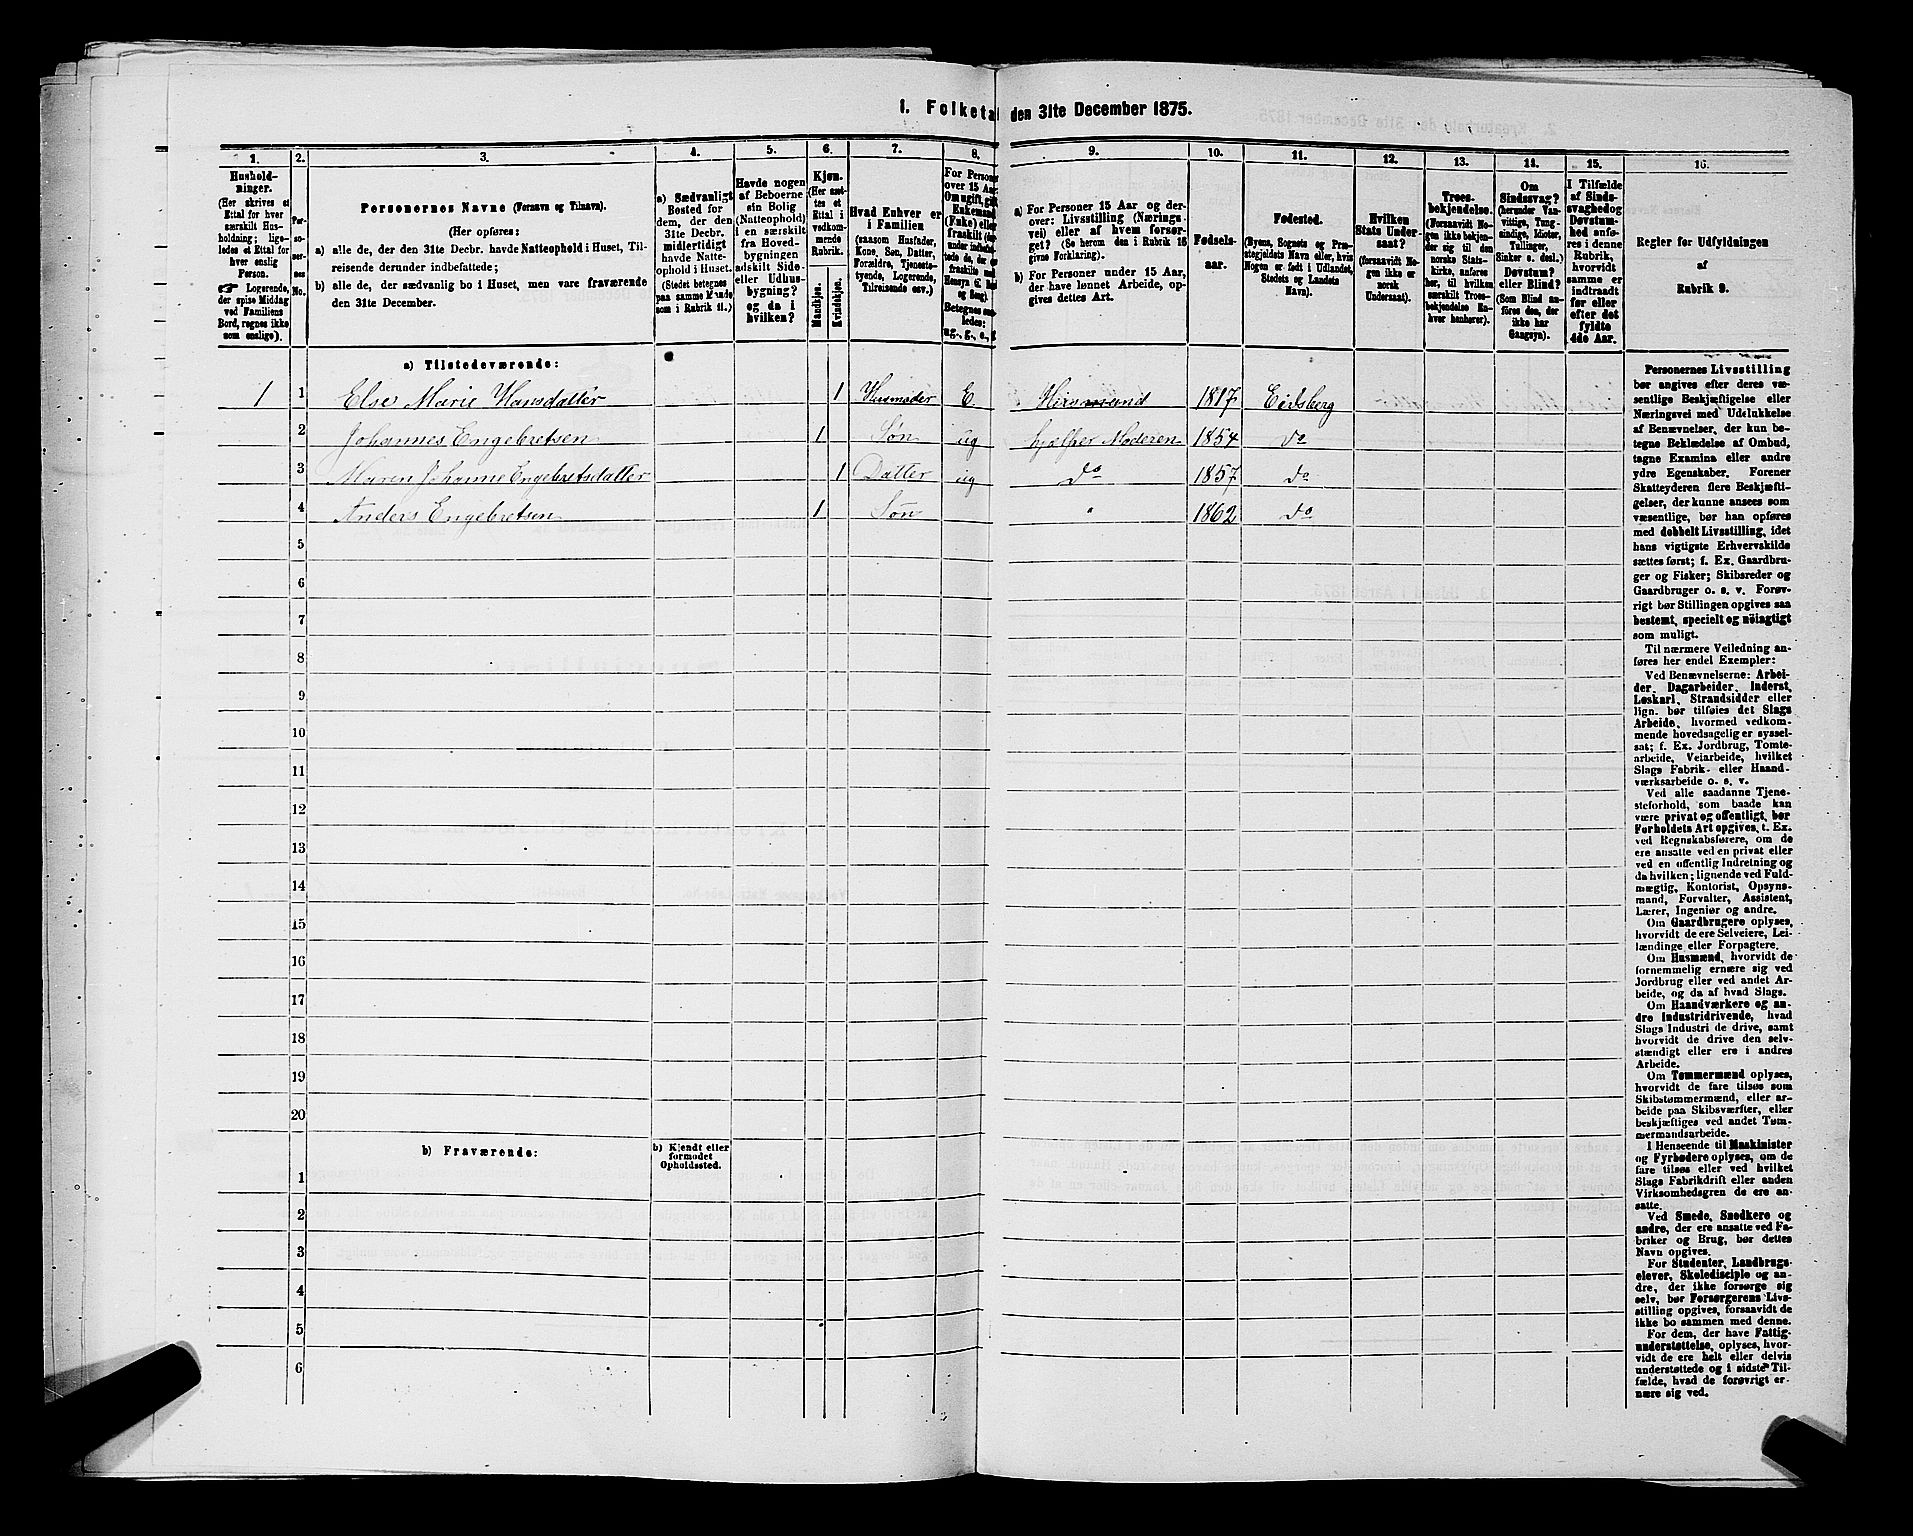 1. Folketal den 31te December 1875.
1. 2. 3. 4. 5. 6. 7. 8. 9. 10. 11. 12. 13. 14. 15. 16.
Hushold-
ninger.
(Her skrives et
Ettal for hver
særskilt Hus-
holdning; lige-
ledes et Ettal for
hver enslig
Person.
Logerende,
der spise Middag
ved Familiens
Bord, regnes ikke
som enslige).
Per-
so-
ner-
nes
No.
Personernes Navne (Fornavn og Tilnavn).
(Her opføres:
a) alle de, der den 31te Decbr. havde Natteophold i Huset, Til-
reisende derunder indbefattede;
b) alle de, der sædvanlig bo i Huset, men vare fraværende
den 31te December.
a) Sædvanligt
Bosted for
dem, der den
31te Decbr.
midlertidigt
havde Natte-
ophold i Huset.
(Stedet betegnes
paa samme Maade
som i Rubrik 11.)
Havde nogen
af Beboerne
sin Bolig
(Natteophold)
i en særskilt
fra Hoved-
bygningen
adskilt Side-
eller Udhus-
bygning?
og da i
hvilken?
Kjøn.
(Her sæt-
tes et
Ettal i
vedkom-
mende
Rubrik.
Mandkjøn.
Kvindekjøn.
Hvad Enhver er
i Familien
(saasom Husfader,
Kone, Søn, Datter,
Forældre, Tjeneste-
tyende, Logerende,
Tilreisende osv.)
For Person
over 15 Aar
Om ugift, gift,
Enkemand
(Enke) eller
fraskilt
a) For Personer 15 Aar og der-
over: Livsstilling (Nærings-
vei) eller af hvem forsør-
get? (Se herom den i Rubrik 16
givne Forklaring).
b) For Personer under 15 Aar,
der have lønnet Arbeide, op-
gives dettes Art.
Fødsels-
aar.
Fødested.
(Byens, Sognets og Præ-
stegjeldets Navn eller, hvis
Nogen er født i Udlandet,
Stedets og Landets
Navn).
Hvilken
Stats Under-
saat?
(forsaavidt No-
gen ikke er
norsk
Undersaat).
Troes-
bekjendelse.
(Forsaavidt No-
gen ikke bekjen-
der sig til den
norske Stats-
kirke, anføres
her, til hvilken
særskilt Troes-
bekjendelse En-
hver henhører).
Om
Sindssvag?
(herunder Van-
vittige, Tung-
sindige, Idioter,
Tullinger,
Sinker o. desl.)
Døvstum?
eller Blind?
(Som Blind an-
føres den, der
ikke har
Gangsyn).
I Tilfælde
af Sinds-
svaghed og
Døvstum-
hed anfø-
res i denne
Rubrik,
hvorvidt
samme er
indtraadt
før eller
efter det
fyldte
4de Aar.
Regler for Udfyldningen
af
Rubrik 9.
a) Tilstedeværende:
1 1 Else Marie Hansdatter 1 Husmoder E 1817 Eidsberg
2 Johannes Engebretsen 1 Søn ug hjælper Moderen 1854 do
3 Maren Johanne Engebretsdatter 1 Datter ug do 1857 do
4 Anders Engebretsen 1 Søn " 1862 do
5
6
7
8
9
10
11
12
13
14
15
16
17
18
19
20
b) Fraværende:
b) Kjendt eller
formodet
Opholdssted.
1
2
3
4
5
6
Personernes Livsstilling
bør angives efter deres væ-
sentlige Beskjæftigelse eller
Næringsvei med Udelukkelse
af Benævnelser, der kun be-
tegne Beklædelse af Ombud,
tagne Examina eller andre
ydre Egenskaber. Forener
Skatteyderen flere Beskjæfti-
gelser, der kunne ansees som
væsentlige, bør han opføres
med dobbelt Livsstilling, idet
hans vigtigste Erhvervskilde
sættes først; f. Ex. Gaardbru-
ger og Fisker; Skibsreder og
Gaardbruger o. s. v. Forøv-
rigt bør Stillingen opgives saa
bestemt, specielt og nöiagtigt
som muligt.
Til nærmere Veiledning an-
føres her endel Exempler:
Ved Benævnelserne: Arbei-
der, Dagarbeider, Inderst,
Løskarl, Strandsidder eller
lign. bør tilføies det Slags
Arbeide, hvormed vedkom-
mende hovedsagelig er syssel-
sat; f. Ex. Jordbrug, Tomte-
arbeide, Veiarbeide, hvilket
Slags Fabrik- eller Haand-
værksarbeide o. s. v.
Ved alle saadanne Tjene-
steforhold, som baade kan
være privat og offentligt, bør
Forholdets Art opgives, t. Ex.
ved Regnskabsførere, om de
ere ansatte ved en privat eller
ved en offentlig Indretning og
da hvilken; lignende ved Fuld-
mægtig, Kontorist, Opsyns-
mand, Forvalter, Assistent,
Lærer, Ingeniør og andre.
Om Gaardbrugere oplyses,
hvorvidt de ere Selveiere, Lei-
lændinge eller Forpagtere.
Om Husmænd, hvorvidt de
fornemmelig ernære sig ved
Jordbrug eller ved andet Ar-
beide, og da af hvad Slags.
Om Haandværkere og an-
dre Industridrivende, hvad
Slags Industri de drive, samt
hvorvidt de drive den selv-
stændigt eller ere i andres
Arbeide.
Om Tømmermænd oplyses,
hvorvidt de fare tilsøs som
Skibstømmermænd, eller ar-
beide paa Skibsværfter, eller
beskjæftiges ved andet Tøm-
mermandsarbeide.
I Henseende til Maskinister
og Fyrbødere oplyses, om de
fare tilsøs eller ved hvilket
Slags Fabrikdrift eller anden
Virksomhedsgren de ere an-
satte.
Ved Smede, Snedkere og
andre, der ere ansatte ved Fa-
briker og Brug, bør dettes
Navn opgives.
For Studenter, Landbrugs-
elever, Skoledisciple og an-
dre, der ikke forsørge sig
selv, bør Forsørgerens Livs-
stilling opgives, forsaavidt de
ikke bo sammen med denne.
For dem, der have Fattig-
understøttelse, oplyses, hvor-
vidt de ere helt eller delvis
understøttede og i sidste Til-
fælde, hvad de forøvrigt er-
nære sig ved.